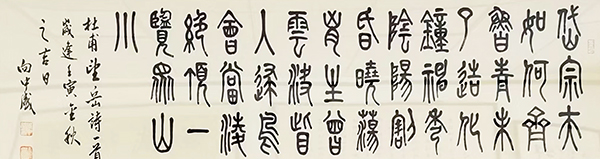 岱宗夫
如何齊
魯青未
了造化
鐘神秀
陰陽割
昏曉蕩
胷生曾
雲決眥
入歸鳥
會當淩
絕頂一
覽眾山
小
杜甫望岳詩一首
歲逢壬寅金秋
之吉日